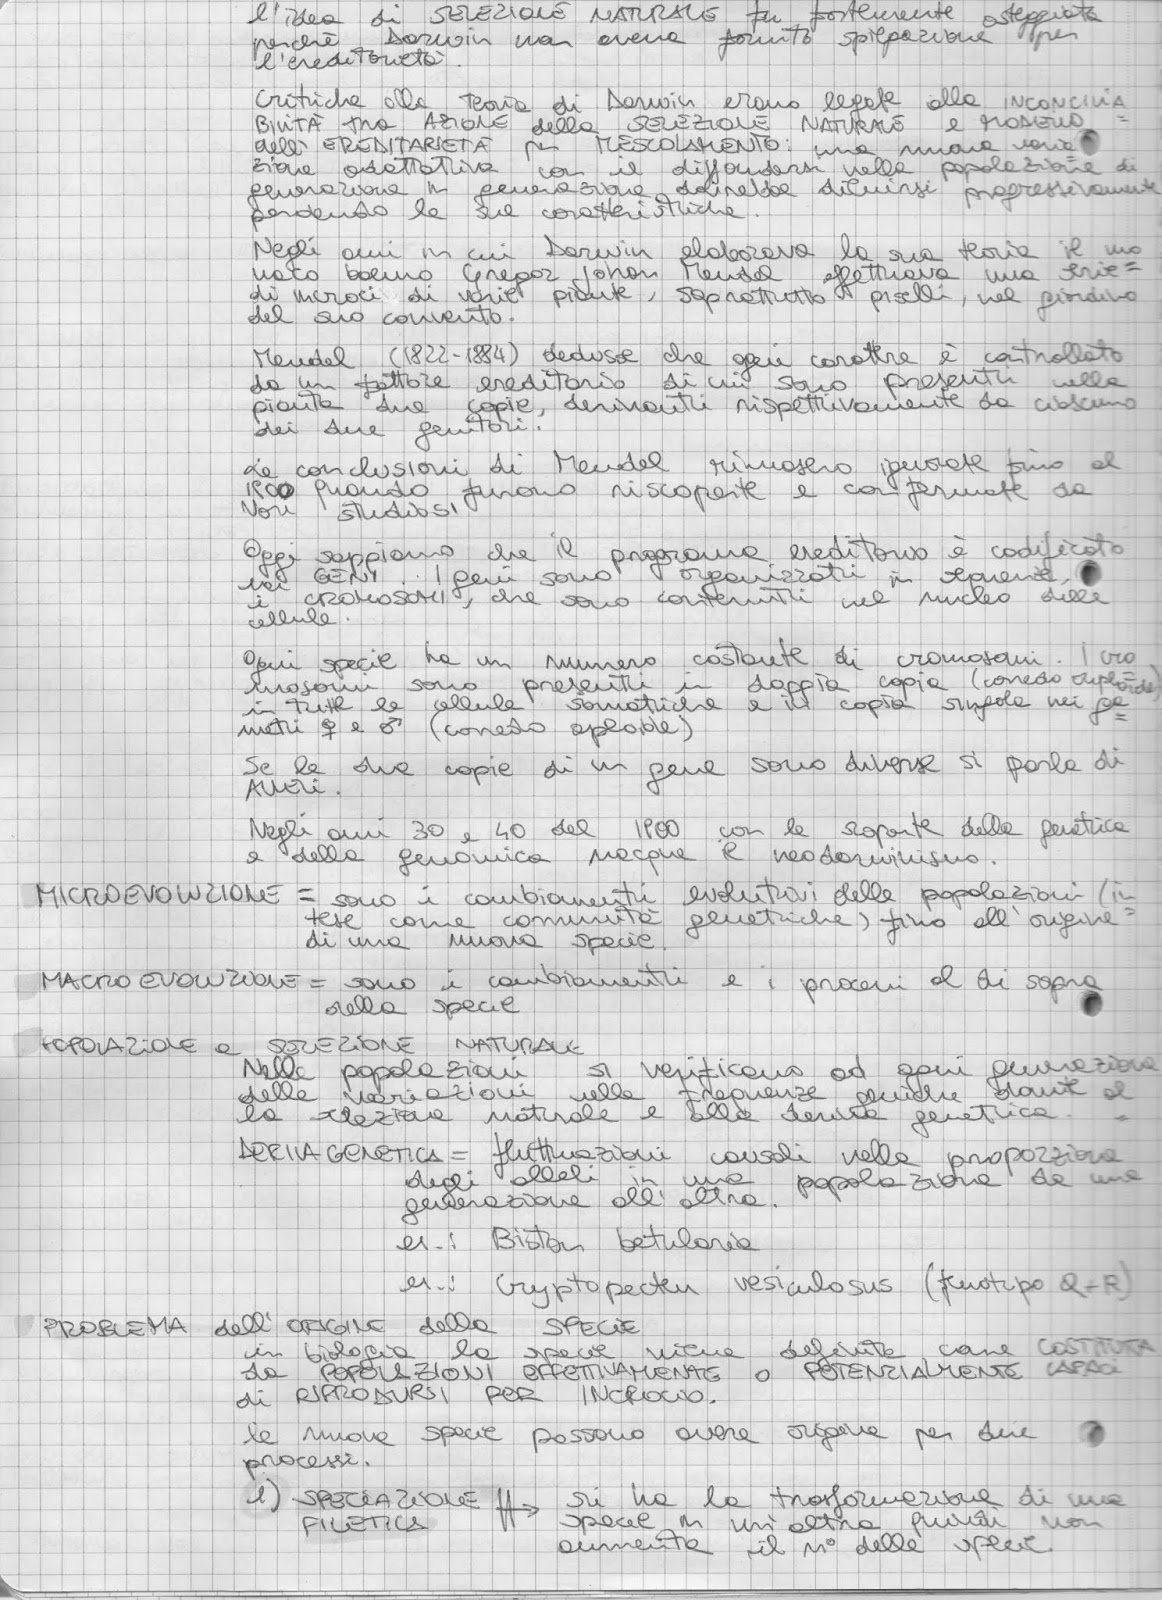 l'idea di SELEZIONE NATURALE fu fortemente osteggiata
perché Darwin non aveva fornito spiegazione per
l'ereditarietà.
Critiche alla teoria di Darwin erano legate alla INCONCILIA
BILITÀ tra AZIONE della SELEZIONE NATURALE e MODELLO =
dell'EREDITARIETÀ per MESCOLAMENTO: una nuova varia
zione adattativa con il diffondersi nella popolazione di
generazione in generazione dovrebbe diluirsi progressivamente
perdendo le sue caratteristiche.
Negli anni in cui Darwin elaborava la sua teoria il mo
naco boemo Gregor Johan Mendel effettuava una serie =
di incroci di varie piante, soprattutto piselli, nel giardino
del suo convento.
Mendel (1822-1884) dedusse che ogni carattere è controllato
da un fattore ereditario di cui sono presenti nella
pianta due copie, derivanti rispettivamente da ciascuno
dei due genitori.
Le conclusioni di Mendel rimasero ignorate fino al
1900 quando furono riscoperte e confermate da
vari studiosi
Oggi sappiamo che il programma ereditario è codificato
nei GENI. I geni sono organizzati in sequenze,
i CROMOSOMI, che sono contenuti nel nucleo delle
cellule.
Ogni specie ha un numero costante di cromosomi. I cro
mosomi sono presenti in doppia copia (corredo diploide) =
in tutte le cellule somatiche e in copia singola nei ga
meti ♀ e ♂ (corredo aploide) =
Se le due copie di un gene sono diverse si parla di
ALLELI.
Negli anni 30 e 40 del 1900 con le scoperte della genetica
e della genomica nacque il neodarwinismo.
MICROEVOLUZIONE = sono i cambiamenti evolutivi delle popolazioni (in
tese come comunità genetiche) fino all'origine =
di una nuova specie.
MACROEVOLUZIONE = sono i cambiamenti e i processi al di sopra
della specie
POPOLAZIONE e SELEZIONE NATURALE
Nelle popolazioni si verificano ad ogni generazione
delle variazioni nelle frequenze geniche dovute al
la selezione naturale e alla deriva genetica. =
DERIVA GENETICA = fluttuazioni casuali nella proporzione
degli alleli in una popolazione da una
generazione all'altra.
es.: Biston betularia
es.: Cryptopecten vesiculosus (fenotipo Q-R)
PROBLEMA dell'ORIGINE della SPECIE
in biologia la specie viene definita come COSTITUITA
da POPOLAZIONI EFFETTIVAMENTE o POTENZIALMENTE CAPACI
di RIPRODURSI PER INCROCIO.
le nuove specie possono avere origine per due
processi.
1) SPECIAZIONE → si ha la trasformazione di una
FILETICA specie in un'altra quindi non
aumenta il n° delle specie.